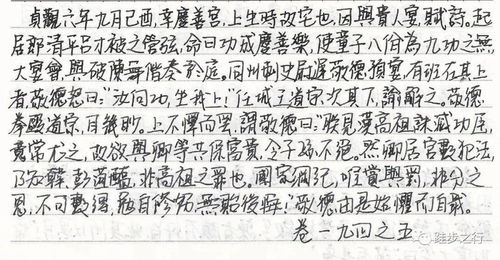 貞觀六年九月己酉,幸慶善宮,上生時故宅也,因與貴人宴,賦詩。起
居郎清平呂才被之管弦,命曰功成慶善樂,使童子八佾為九功之舞,
大宴會,與破陳舞偕奏於庭。同州刺史尉遲敬德預宴,有班在其上
者,敬德怒曰:“汝何功,坐我上!”任城王道宗次其下,諭解之。敬德
拳毆道宗,目幾眇。上不懌而罷,謂敬德曰:“朕見漢高祖誅滅功臣,
意常尤之,故欲與卿等共保富貴,令子孫不絕。然卿居官數犯法,
乃知韓、彭菹醢,非高祖之罪也。國家綱紀,唯賞與罰,非分之
恩,不可數得,勉自修飭,無貽後悔!”敬德由是始懼而自戢。
卷一九四之五
跬步之行